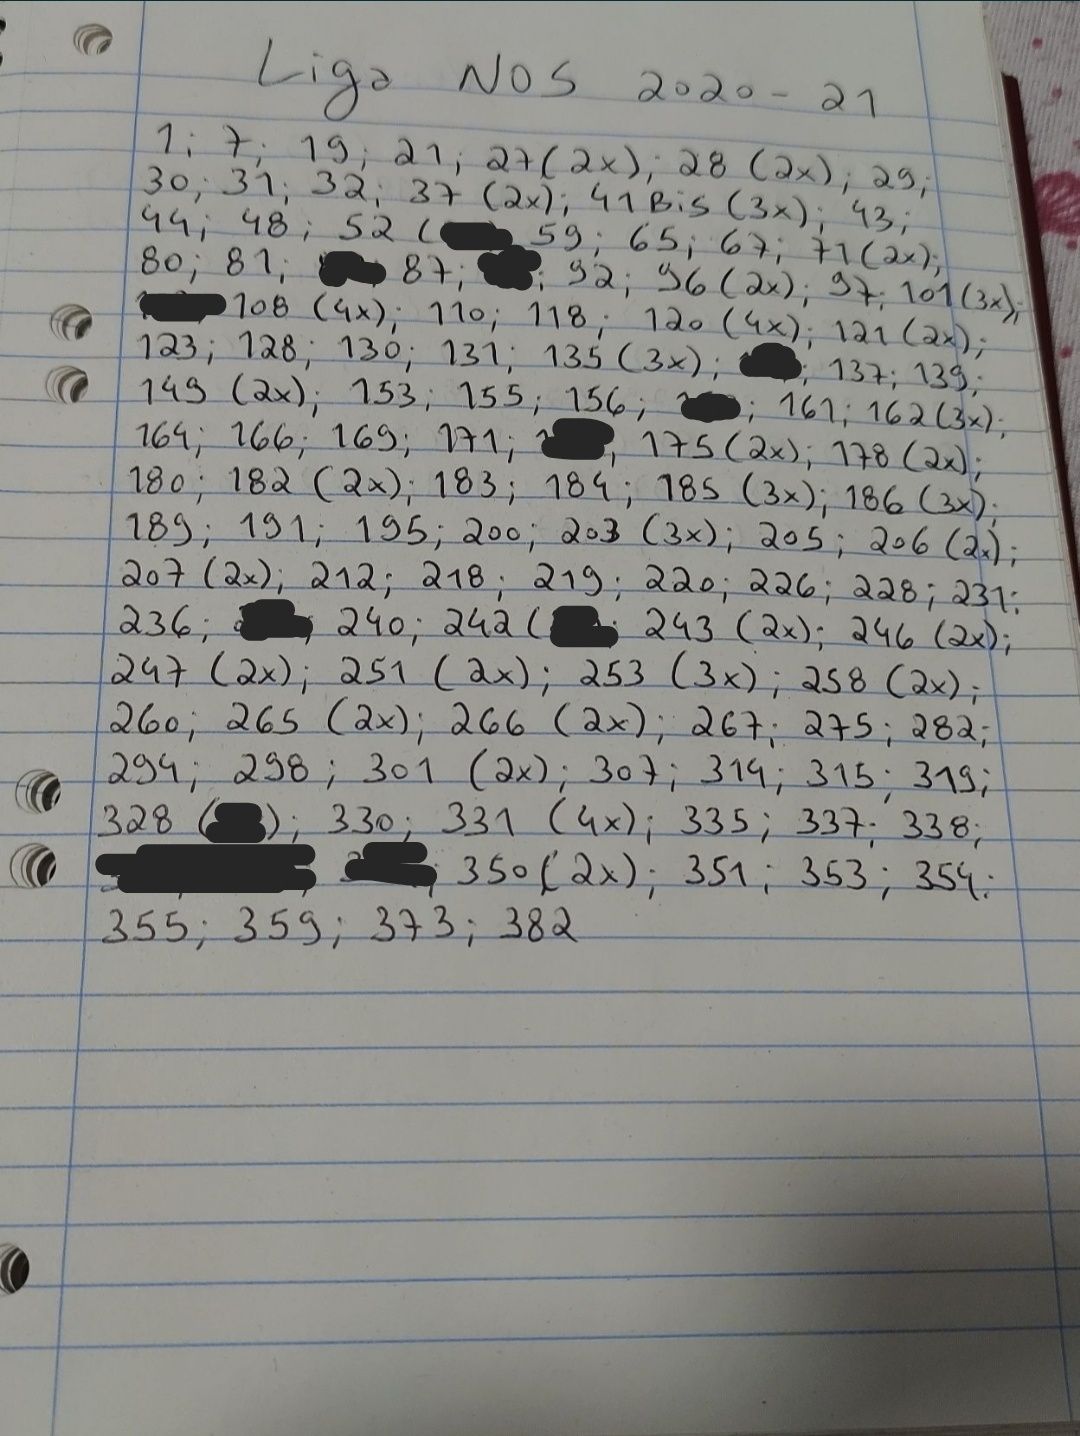 Liga NOS 2020-21
1; 7; 19; 21; 27(2x); 28 (2x); 29;
30; 31; 32; 37 (2x); 41 Bis (3x); 43;
44; 48; 52 ( 59; 65; 67; 71(2x);
80; 81; 87; ; 92; 96(2x); 97; 101(3x);
108 (4x); 110; 118; 120(4x); 121(2x);
123; 128; 130; 131; 135(3x); ; 137; 139;
149 (2x); 153; 155; 156; ; 161; 162(3x);
164; 166; 169; 171; ; 175(2x); 178(2x);
180; 182 (2x); 183; 184; 185 (3x); 186 (3x);
189; 191; 195; 200; 203 (3x); 205; 206(2x);
207(2x); 212; 218; 219; 220; 226; 228; 231;
236; ; 240; 242( ; 243 (2x); 246 (2x);
247 (2x); 251 (2x); 253 (3x); 258 (2x);
260; 265 (2x); 266 (2x); 267; 275; 282;
294; 298; 301 (2x); 307; 314; 315; 319;
328 ( ); 330; 331 (4x); 335; 337; 338;
; ; 350(2x); 351; 353; 354;
355; 359; 373; 382